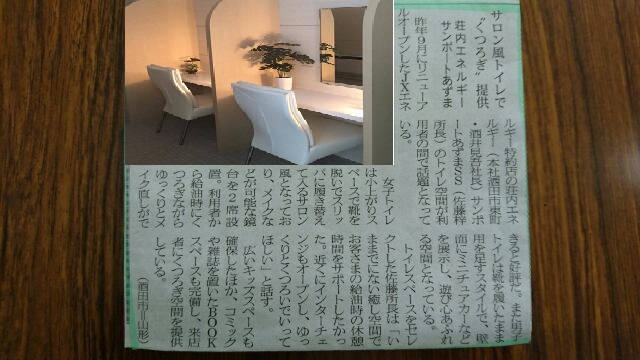 サロン風トイレで
“くつろぎ”提供
荘内エネルギー
サンポートあずま
昨年9月にリニューア
ルオープンしたJXエネ
ルギー特約店の荘内エネ
ルギー（本社酒田市東町
・酒井晃吾社長）サンポ
ートあずまSS（佐藤梓
所長）のトイレ空間が利
用者の間で話題となって
いる。
女子トイレ
は小上がりス
ペースで靴を
脱いでスリッ
パに履き替え
て入るサロン
風となってお
り、メイクな
どが可能な鏡
台を2席設
置。利用者か
ら給油時にく
つろぎながら
ゆっくりとメ
イク直しがで
きると好評だ。また男子
トイレは靴を履いたまま
用を足すスタイルで、壁
面にミニチュアカーなど
を展示し、遊び心あふれ
る空間となっている。
トイレスペースをセレ
クトした佐藤所長は「い
ままでにない癒し空間で
お客さまの給油時の休憩
時間をサポートしたかっ
た。近くにインターチェ
ンジもオープンし、ゆっ
くりとくつろいでいって
ほしい」と話す。
広いキッズスペースも
確保したほか、コミック
や雑誌を置いたBOOK
スペースも完備し、来店
者にくつろぎ空間を提供
している。
（酒田市＝山形）